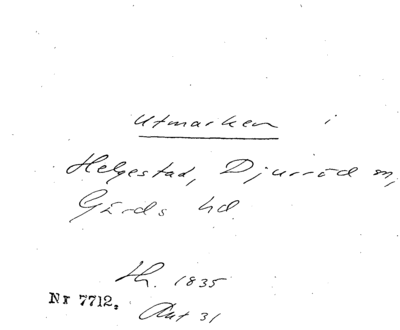 Utmarken i
Helgestad, Djurröd sn,
Gärds hd.
Th. 1835
Nr 7712.
Akt 31